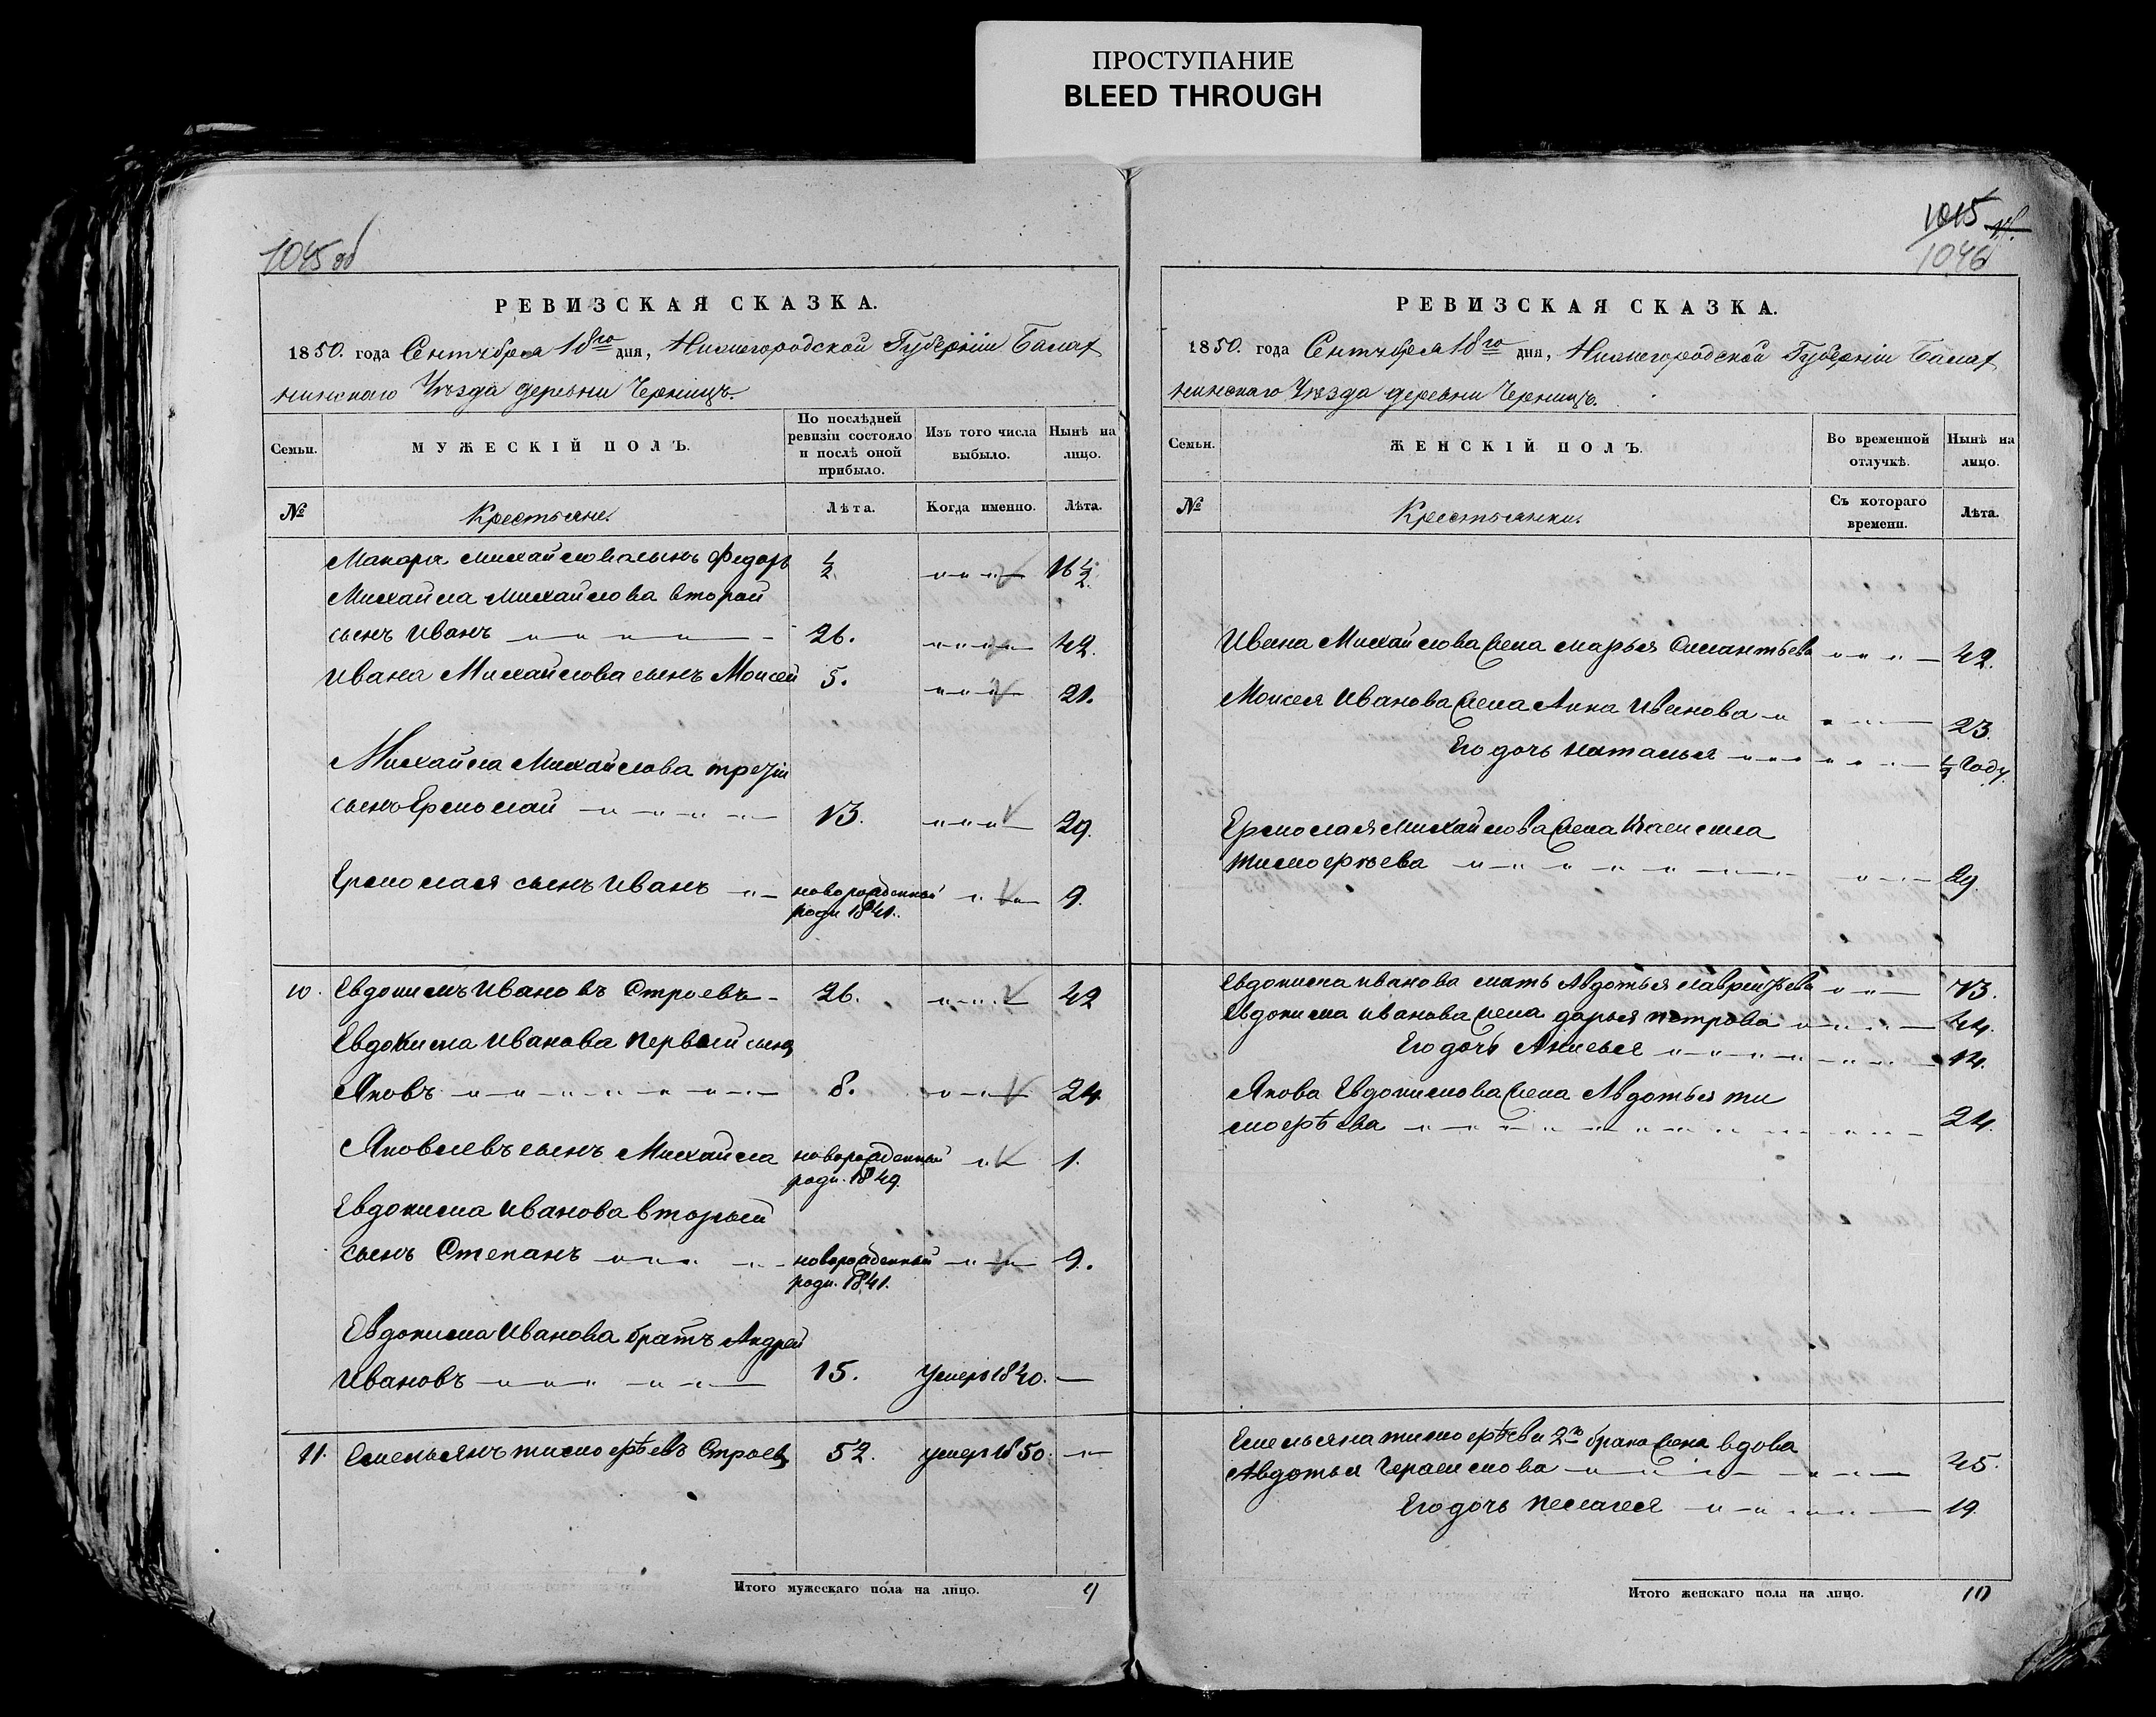 ПРОСТУПАНИЕ
BLEED THROUGH
1045 об
РЕВИЗСКАЯ СКАЗКА.
1850. года Сентября 18го дня, Нижегородской Губерніи Балах
нинскаго Уѣзда деревни Черницъ.
Семьи.
МУЖЕСКІЙ ПОЛЪ.
По послѣдней ревизіи состояло и послѣ оной прибыло.
Изъ того числа выбыло.
Нынѣ на лицо.
№
Крестьяне.
Лѣта.
Когда именно.
Лѣта.
Макара Михайлова сынъ Федоръ ½ 16 ½
Михайла Михайлова второй
сынъ Иванъ 26. 42.
Ивана Михайлова сынъ Моисей 5. 21.
Михайла Михайлова третій
сынъ Ермолай 13. 29.
Ермолая сынъ Иванъ новорожденный 9.
роди 1841.
10. Евдокимъ Ивановъ Строевъ 26. 42
Евдокима Иванова первый сынъ
Яковъ 8. 24
Яковлевъ сынъ Михайла новорожденный 1.
роди. 1849.
Евдокима Иванова вторый
сынъ Степанъ новорожденный 9.
роди. 1841.
Евдокима Иванова братъ Андрей
Ивановъ 15. умеръ 1840.
11. Емельянъ Тимофѣевъ Строевъ 52. умеръ 1850.
Итого мужескаго пола на лицо. 9
1015
1046
РЕВИЗСКАЯ СКАЗКА.
1850. года Сентября 18го дня, Нижегородской Губерніи Балах
нинскаго Уѣзда деревни Черницъ.
Семьи.
ЖЕНСКІЙ ПОЛЪ.
Во временной отлучкѣ.
Нынѣ на лицо.
№
Крестьянки.
Съ котораго времени.
Лѣта.
Ивана Михайлова жена Марья 42.
Моисея Иванова жена Анна Иванова 23.
Его дочь Наталья году.
Ермолая Михайлова жена
Тимофѣева 29.
Евдокима Иванова мать Авдотья Лаврентьева 73.
Евдокима Иванова жена Дарья Петрова 44.
Его дочь Анисья 14.
Якова Евдокимова жена Авдотья Ти
мофѣева 24.
Емельяна Тимофѣева 2го брака жена вдова
Авдотья Герасимова 45.
Его дочь Пелагея 19.
Итого женскаго пола на лицо. 10